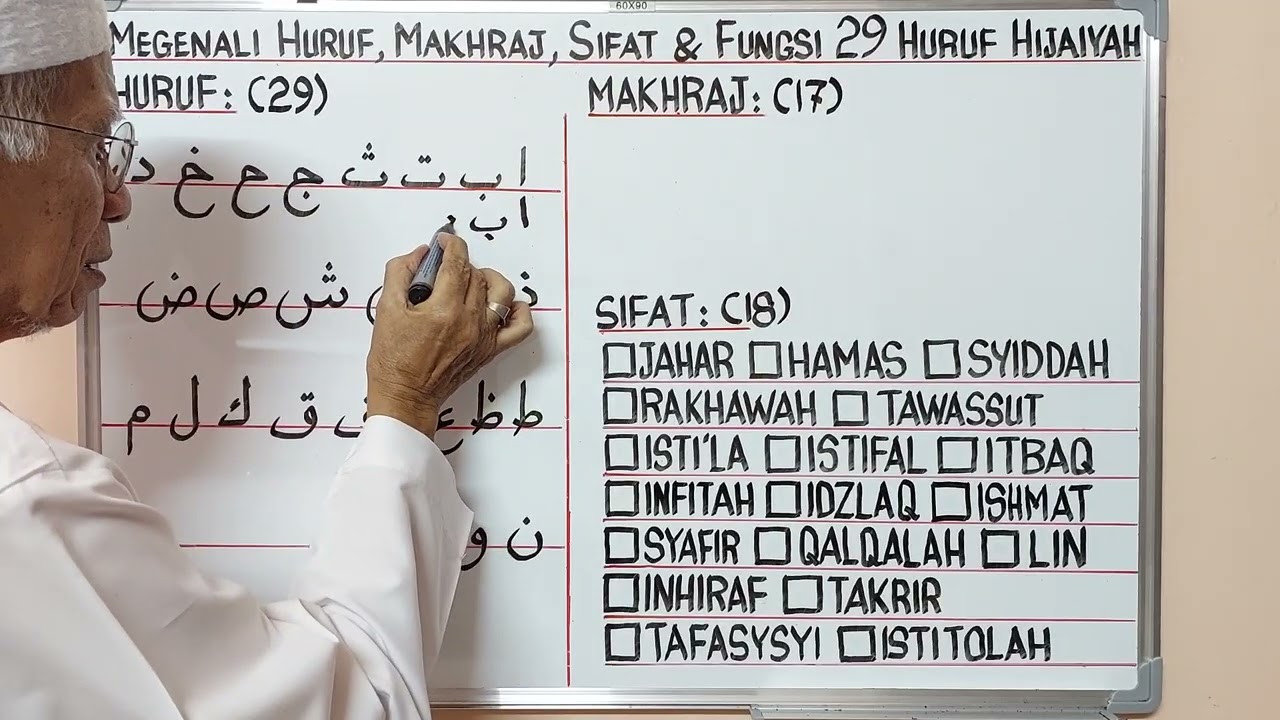 60X90
MEGENALI HURUF, MAKHRAJ, SIFAT & FUNGSI 29 HURUF HIJAIYAH
HURUF: (29)
ا ب ت ث ج ح خ د
ا ب
ذ ش ص ض
ط ظ ع ق ك ل م
ن و
MAKHRAJ: (17)
SIFAT: (18)
JAHAR HAMAS SYIDDAH
RAKHAWAH TAWASSUT
ISTI'LA ISTIFAL ITBAQ
INFITAH IDZLAQ ISHMAT
SYAFIR QALQALAH LIN
INHIRAF TAKRIR
TAFASYSYI ISTITOLAH